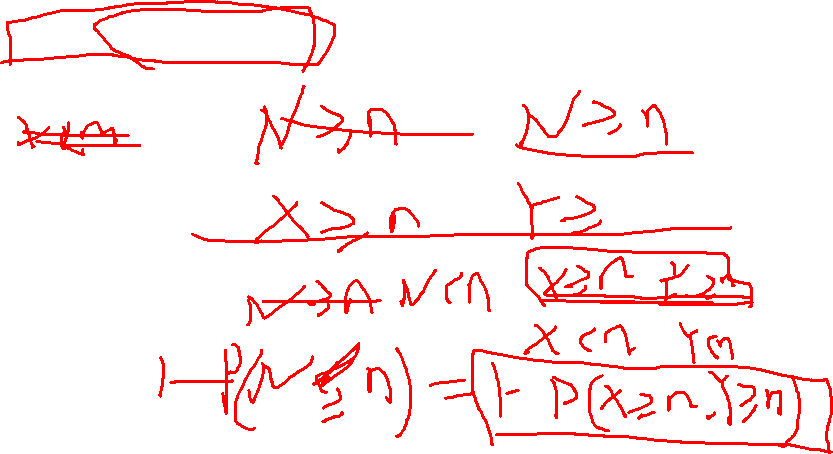 X<m N≥n N≥n
X≥n Y≥
N≥n N<n X≥n Y≥n
X<n Y<n
1-P(N≥n) = 1-P(X≥n,Y≥n)